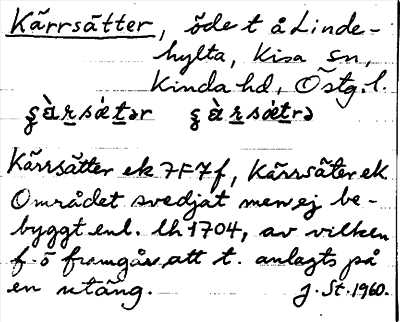 Kärrsätter, öde t å Linde-
hylta, Kisa sn,
Kinda hd, Östg. l.
ʂὰr̲sǽt̲ər ʂὰr̲sǽt̲rə
Kärrsätter ek 7F7f, Kärrsäter ek
Området svedjat men ej be-
byggt enl. lh 1704, av vilken
f. ö framgår, att t. anlagts på
en utäng. J. St. 1960.